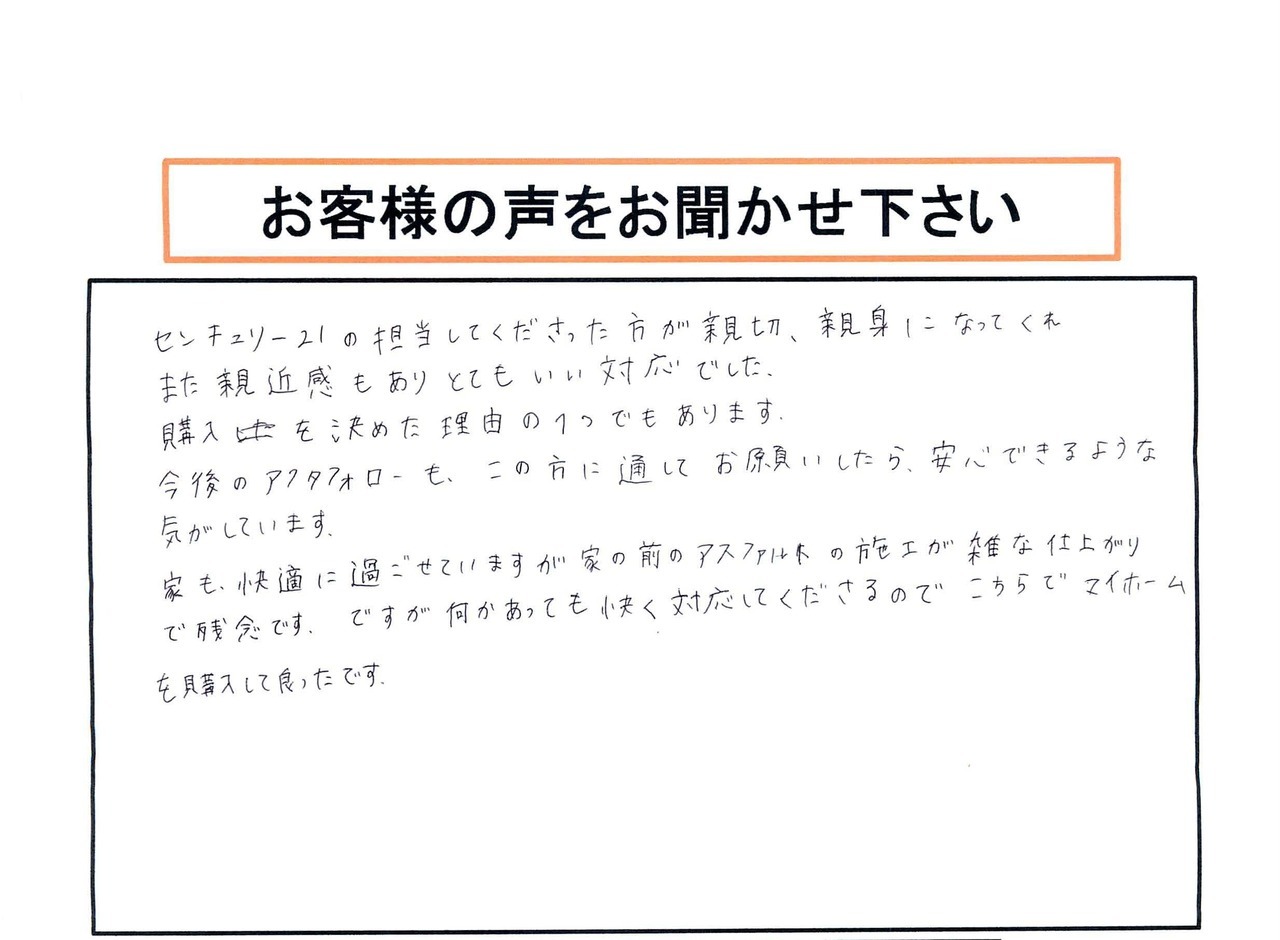 お客様の声をお聞かせ下さい
センチュリー21の担当してくださった方が親切、親身になってくれ
また親近感もありとてもいい対応でした。
購入を決めた理由の1つでもあります。
今後のアフタフォローも、この方に通してお願いしたら、安心できるような
気がしています。
家も、快適に過ごせていますが家の前のアスファルトの施工が雑な仕上がり
で残念です。ですが何かあっても快く対応してくださるのでこちらでマイホーム
を購入して良ったです。